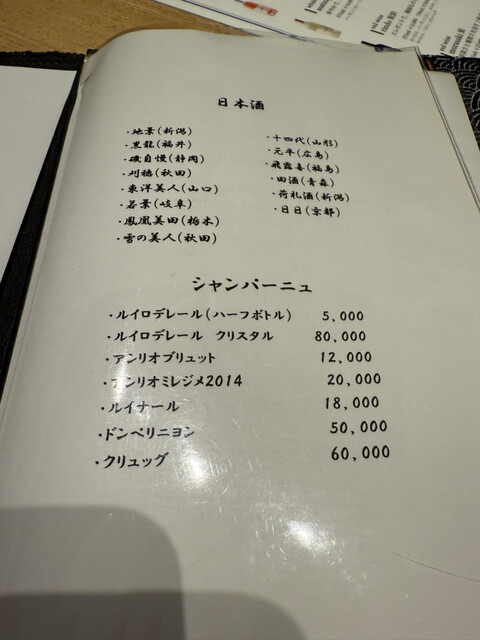 日本酒
・地景(新潟)
・黒龍(福井)
・磯自慢(静岡)
・刈穂(秋田)
・東洋美人(山口)
・若葉(岐阜)
・鳳凰美田(栃木)
・雪の美人(秋田)
・十四代(山形)
・元平(広島)
・飛露喜(福島)
・田酒(青森)
・荷札酒(新潟)
・日日(京都)
シャンパーニュ
・ルイロデレール(ハーフボトル) 5,000
・ルイロデレール クリスタル 80,000
・アンリオブリュット 12,000
・アンリオミレジメ2014 20,000
・ルイナール 18,000
・ドンペリニヨン 50,000
・クリュッグ 60,000
red wine